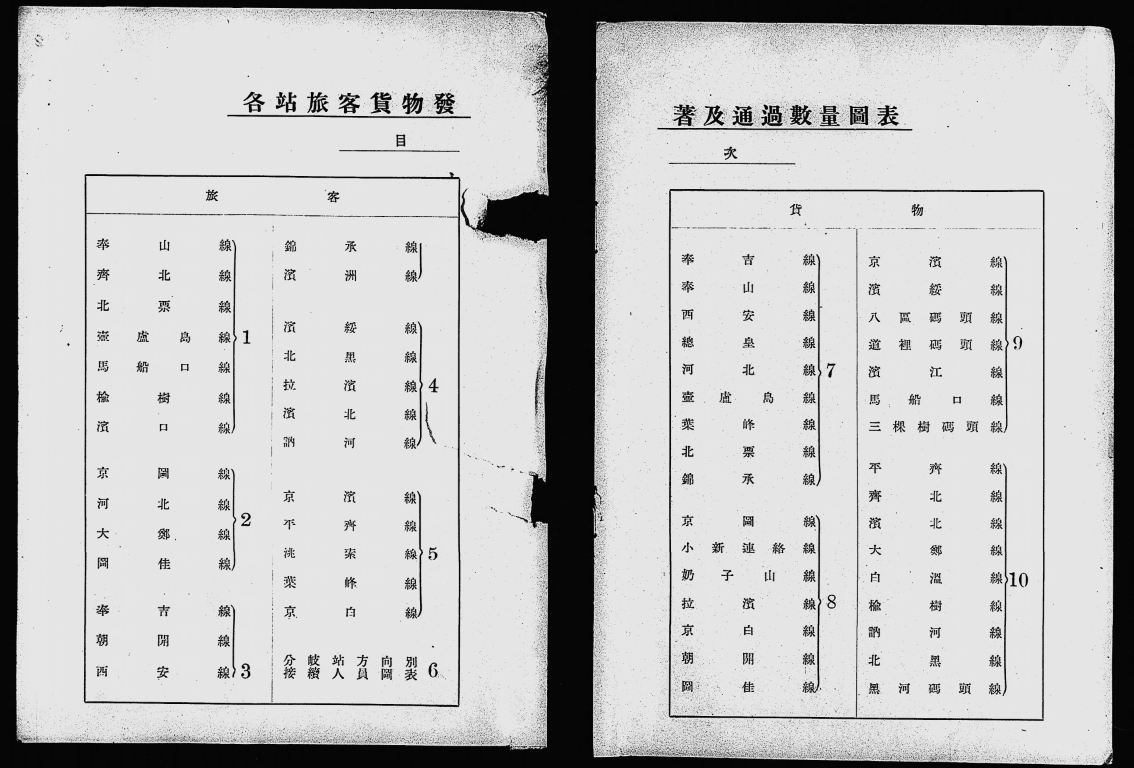 各站旅客貨物發
目
旅客
奉山線
齊北線
北票線
壺盧島線
馬船口線
楡樹線
濱口線
1
京圖線
河北線
大鄭線
圖佳線
2
奉吉線
朝開線
西安線
3
錦承線
濱洲線
濱綏線
北黑線
拉濱線
濱北線
訥河線
4
京濱線
平齊線
洮索線
葉峰線
京白線
5
分岐站方向別
接續人員圖表
6
著及通過數量圖表
次
貨物
奉吉線
奉山線
西安線
總皇線
河北線
壺盧島線
葉峰線
北票線
錦承線
7
京圖線
小新連絡線
奶子山線
拉濱線
京白線
朝開線
圖佳線
8
京濱線
濱綏線
八區碼頭線
道裡碼頭線
濱江線
馬船口線
三棵樹碼頭線
9
平齊線
齊北線
濱北線
大鄭線
白溫線
楡樹線
訥河線
北黑線
黑河碼頭線
10